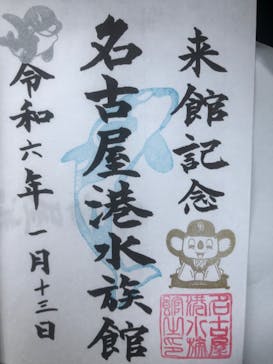 来館記念
名古屋港水族館
令和六年一月十三日
名古屋
港水族
館之印